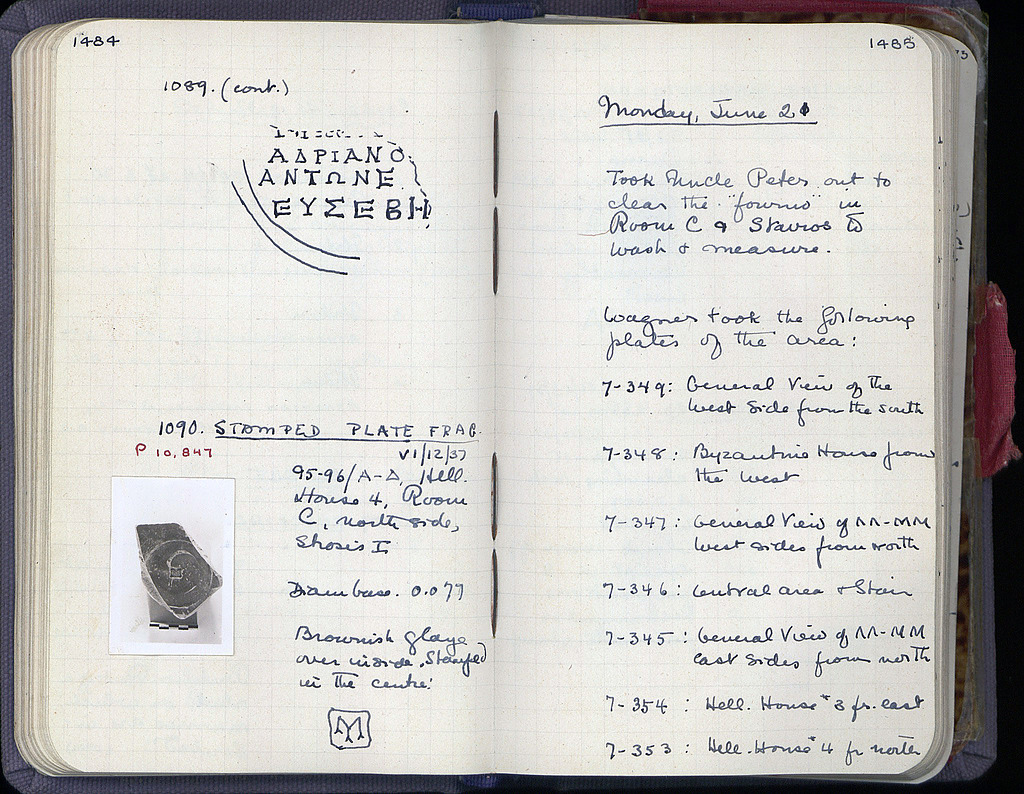 1484
1089. (cont.)
ΑΔΡΙΑΝΟ
ΑΝΤΩΝΕ
ΕΥΣΕΒΗ
1090. STAMPED PLATE FRAG.
P 10,847
VI/12/37
95-96/Λ-Δ, Hell.
House 4, Room
C, north side,
Strosis I
Diam base. 0.077
Brownish glaze
over inside. Stamped
in the centre:
1485
Monday, June 21
Took Uncle Peter out to
clear the "fourno" in
Room C & Stavros to
wash & measure.
Wagner took the following
plates of the area:
7-349: General View of the
West Side from the south
7-348: Byzantine House from
the West
7-347: General View of ΛΛ-ΜΜ
West sides from north
7-346: Central area & Stair
7-345: General View of ΛΛ-ΜΜ
East sides from north
7-354: Hell. House #3 fr. east
7-353: Hell. House #4 fr north